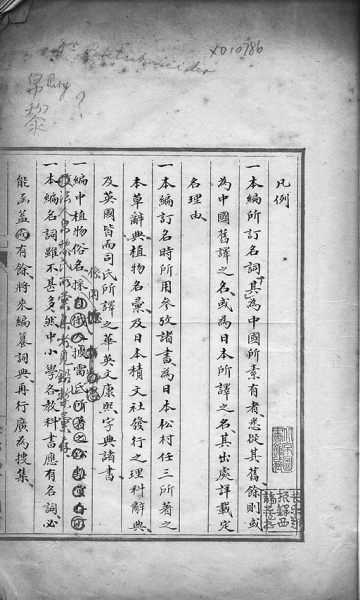 XD10786
Dr Bretschneider
帛黎
Piry
?
凡例
一本編所訂名詞其為中國所素有者悉從其舊餘則或
為中國舊譯之名或為日本所譯之名其出處詳載定
名理由
一本編訂名時所用參攷諸書為日本松村任三所著之
本草辭典植物名彙及日本積文社發行之理科辭典
及英國皆而司氏所譯之華英文康熙字典諸書
一編中植物俗名採
一本編名詞雖不甚多然中小學各教科書應有名詞必
能函蓋而有餘將來編纂詞典再行廣為搜集